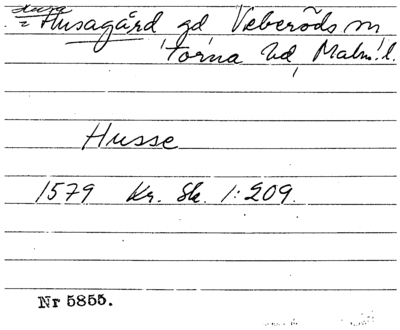 = Husagård gd Veberöds sn
Torna hd, Malm. l.
Husse
1579 Kr. Sk. 1:209.
Nr 5855.